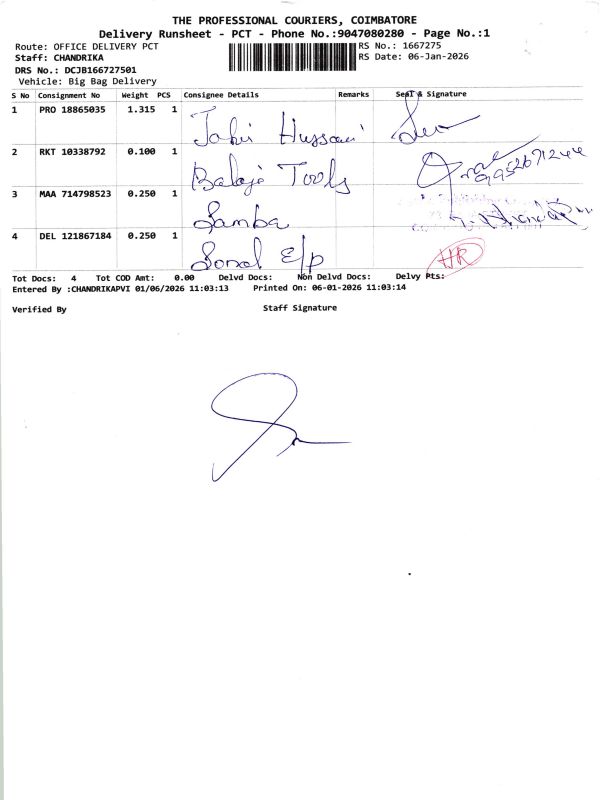 THE PROFESSIONAL COURIERS, COIMBATORE
Delivery Runsheet - PCT - Phone No.:9047080280 - Page No.:1
Route: OFFICE DELIVERY PCT RS No.: 1667275
Staff: CHANDRIKA RS Date: 06-Jan-2026
DRS No.: DCJB166727501
Vehicle: Big Bag Delivery
S No Consignment No Weight PCS Consignee Details Remarks Seal & Signature
1 PRO 18865035 1.315 1 Hussain
2 RKT 10338792 0.100 1 Balaji Tools 9952671244
3 MAA 714798523 0.250 1 Samba
4 DEL 121867184 0.250 1 Sonal E/p HR
Tot Docs: 4 Tot COD Amt: 0.00 Delvd Docs: Non Delvd Docs: Delvy Pts:
Entered By :CHANDRIKAPVI 01/06/2026 11:03:13 Printed On: 06-01-2026 11:03:14
Verified By Staff Signature